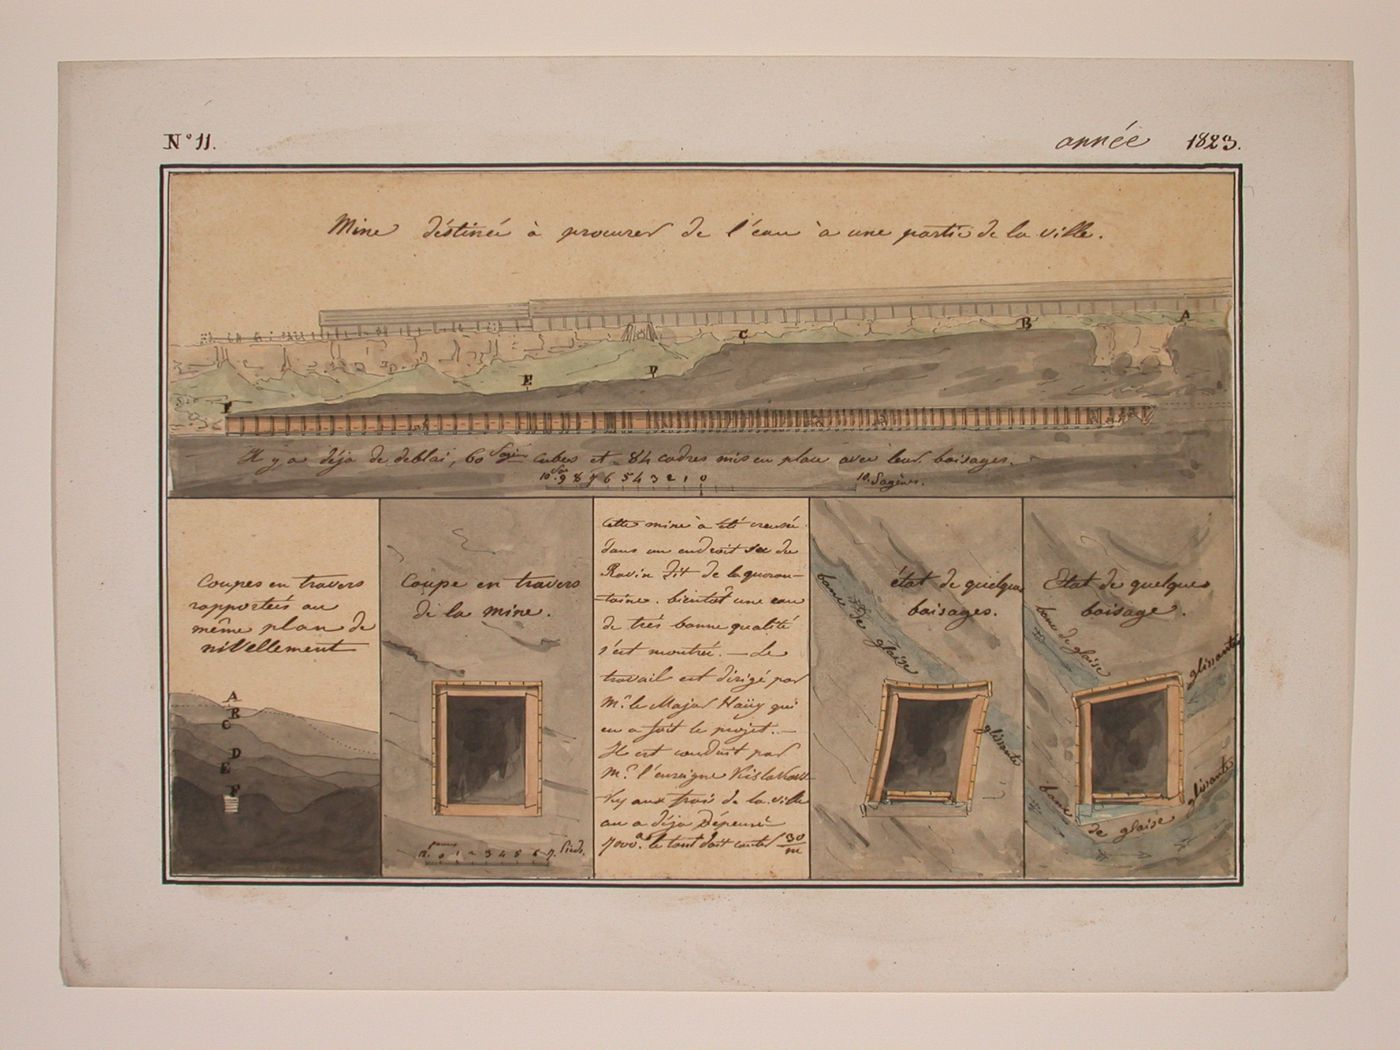 N° 11.
année 1823.
Mine déstinée à procurer de l'eau à une partie de la ville.
A
B
C
D
E
F
Il y a déja de deblai, 60 Sagèn cubes et 84 cadres mis en place avec leur boisages.
10 Sag 9 8 7 6 5 4 3 2 1 0 10. Sagènes.
Coupes en travers
rapportées au
même plan de
nivellement
A
B
C
D
E
F
Coupe en travers
de la mine.
12. 0 1 2 3 4 5 6 7. Pieds.
Cette mine à été creusée
dans un endroit sec du
Ravin dit de la quaran-
-taine. bientôt une eau
de très bonne qualité
s'est montrée. — Le
travail est dirigé par
Mr. le Major Haüy qui
en a fait le projet. —
Il est conduit par
Mr. l'enseigne
aux frais de la ville
on a déja dépensé
7000 le tout doit couter 30/m
état de quelques
boisages.
banc de glaise
glissante
Etat de quelques
boisage.
banc de glaise
glissante
banc de glaise
glissante